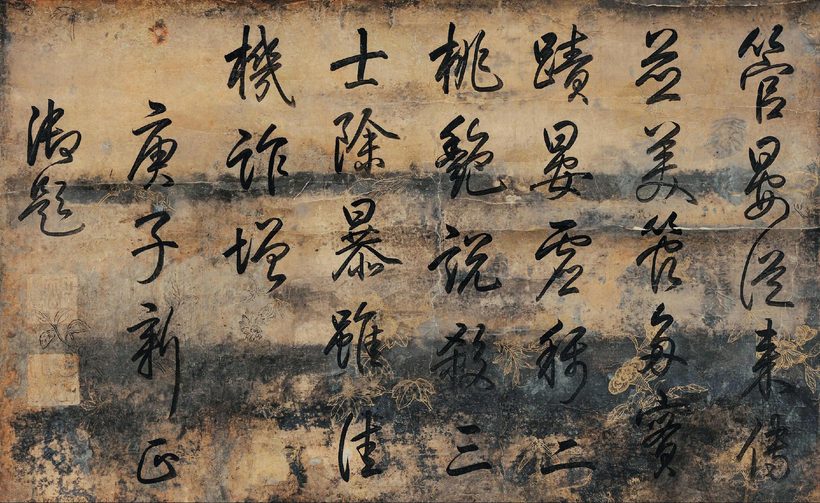 管晏從来傳
並美管多實
蹟晏虛稱二
桃艷說殺三
士除暴雖佳
機詐增
庚子新正
御題